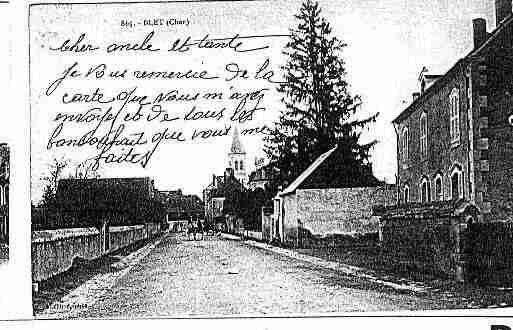 865. - BLET (Cher)
Cher oncle et tante
Je vous remercie de la
carte que vous m'avez
envoyé et de tous les
bon souhait que vous me
faites